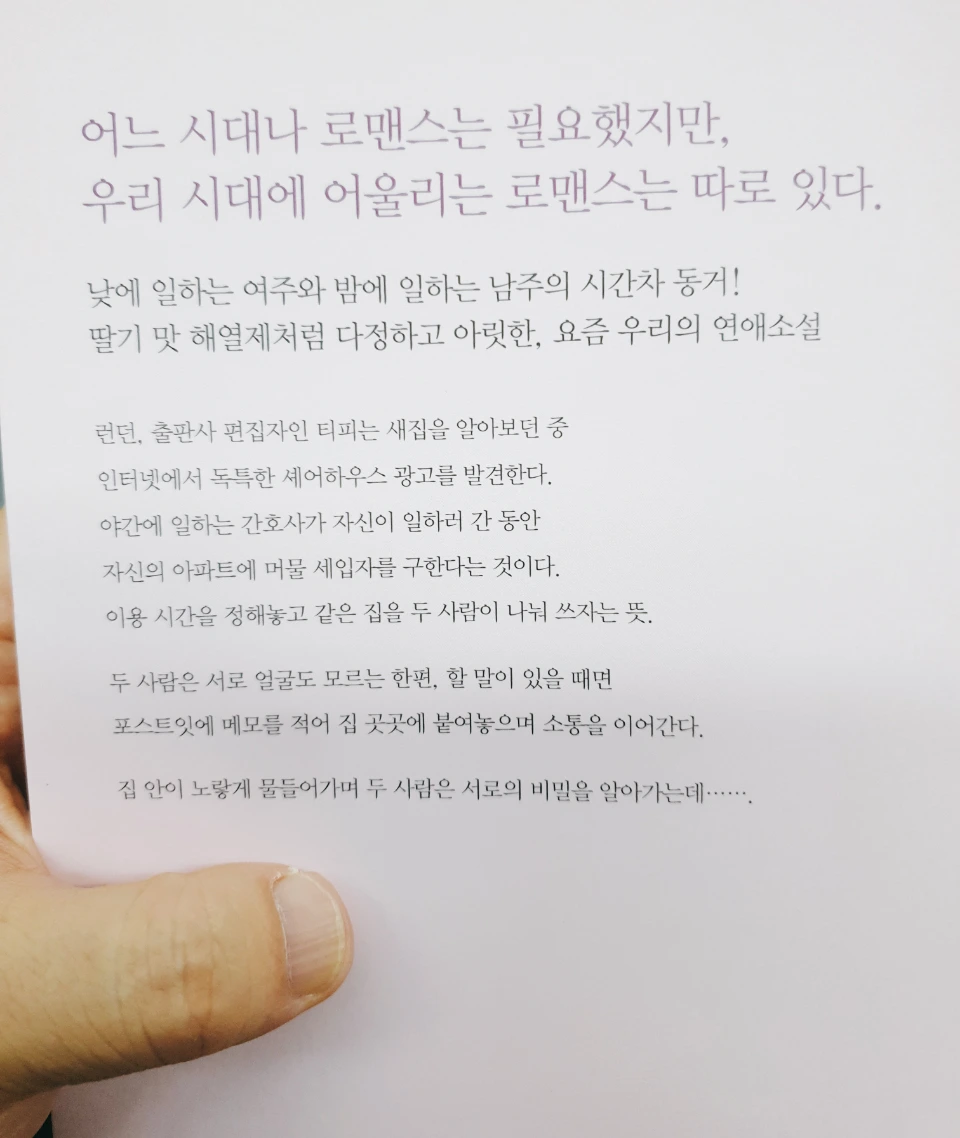 어느 시대나 로맨스는 필요했지만,
우리 시대에 어울리는 로맨스는 따로 있다.
낮에 일하는 여주와 밤에 일하는 남주의 시간차 동거!
딸기 맛 해열제처럼 다정하고 아릿한, 요즘 우리의 연애소설
런던, 출판사 편집자인 티피는 새집을 알아보던 중
인터넷에서 독특한 셰어하우스 광고를 발견한다.
야간에 일하는 간호사가 자신이 일하러 간 동안
자신의 아파트에 머물 세입자를 구한다는 것이다.
이용 시간을 정해놓고 같은 집을 두 사람이 나눠 쓰자는 뜻.
두 사람은 서로 얼굴도 모르는 한편, 할 말이 있을 때면
포스트잇에 메모를 적어 집 곳곳에 붙여놓으며 소통을 이어간다.
집 안이 노랗게 물들어가며 두 사람은 서로의 비밀을 알아가는데…….